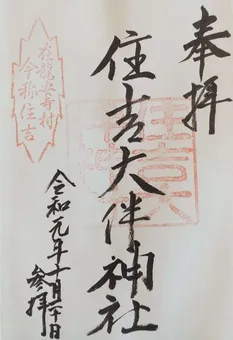 奉拝
住吉大伴神社
在龍安寺村
今称住吉
令和元年十月二十日
参拝